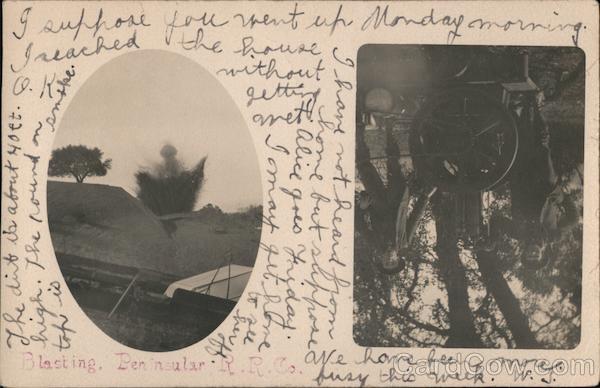 I suppose you went up Monday morning.
I reached the house
O. K. without
getting
wet. Alice goes Friday.
I may get home
to see
I have not heard from
home but suppose
The dirt is about 40 ft.
high. The round on
top is
smoke.
Blasting, Peninsular R. R. Co.
We have been
busy this week. W. S.
CardCow.com